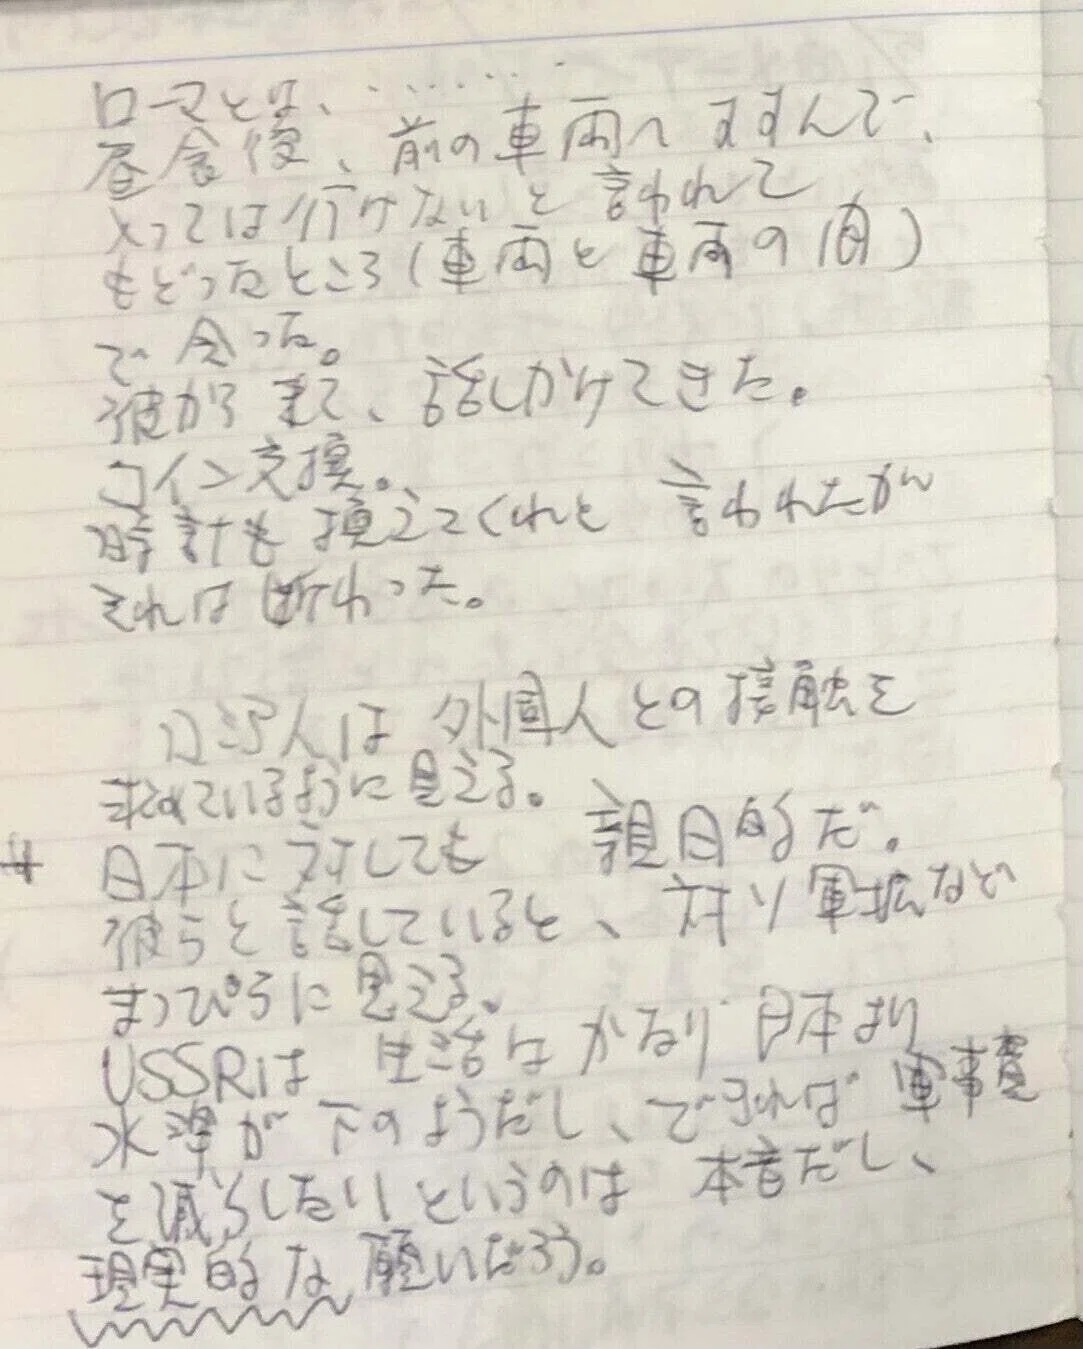 ローマとは、・・・・・・・
昼食後、前の車両へすすんで、
とっては行けないと言われて
もどったところ(車両と車両の間)
で会った。
彼から来て、話しかけてきた。
コイン交換。
時計も換えてくれと言われたが
それは断わった。
ソ連人は外国人との接触を
求めているように見える。
日本に対しても親日的だ。
彼らと話していると、対ソ軍拡など
まっぴらに見える。
USSRは生活はかなり日本より
水準が下のようだし、できれば軍事費
を減らしたいというのは本音だし、
現実的な願いだろう。